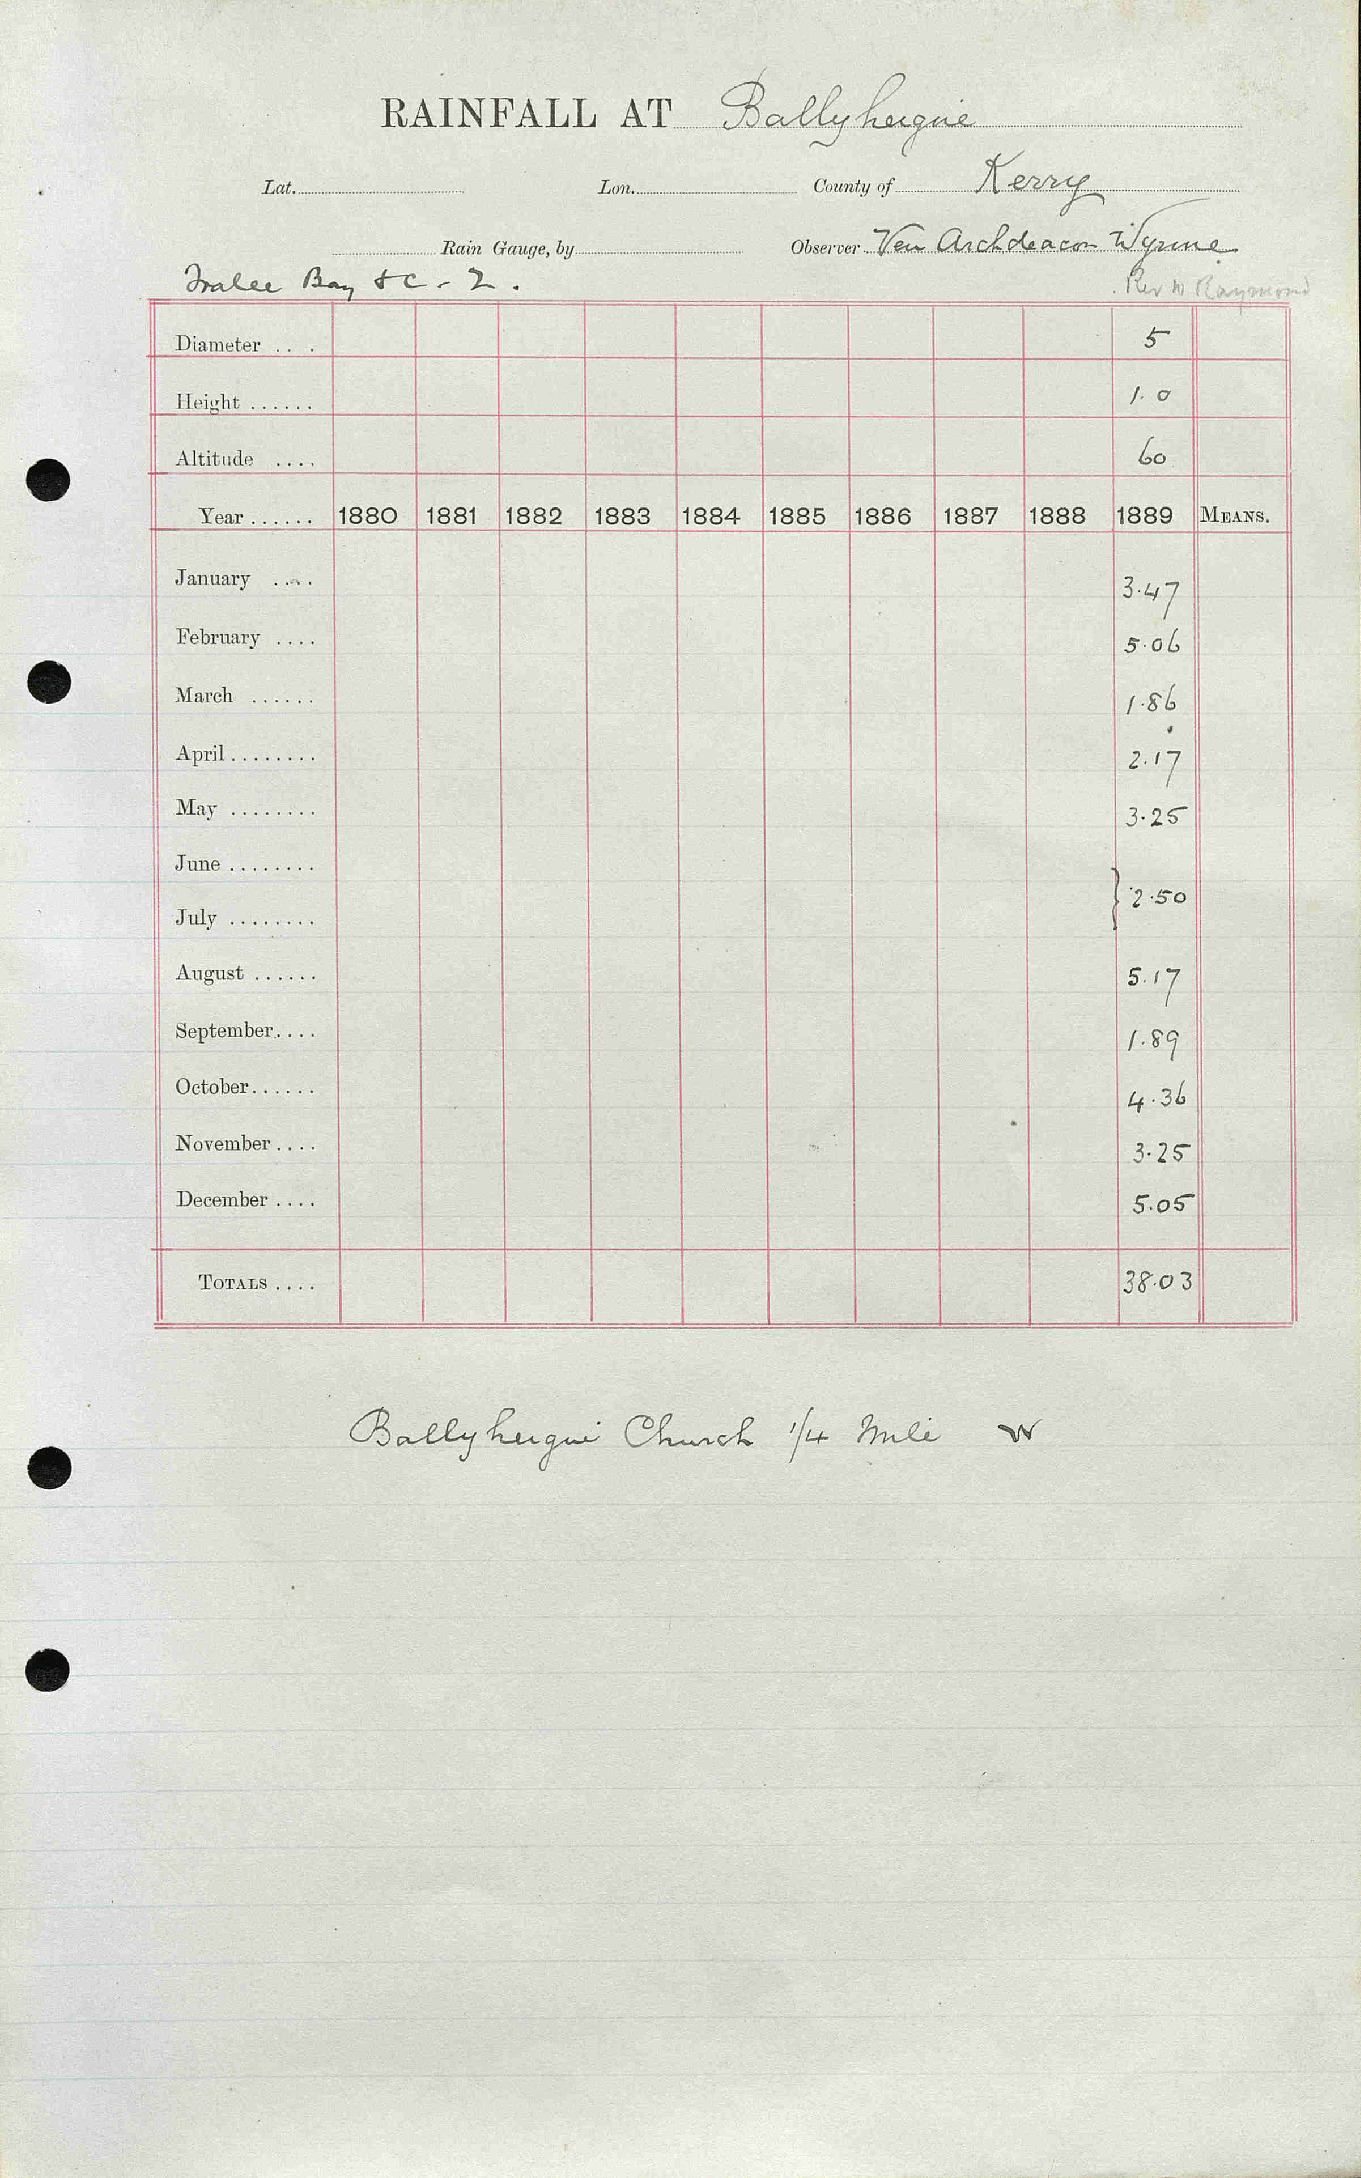 RAINFALL AT Ballyheigue
Lat. Lon. County of Kerry
Rain Gauge, by Observer Ven Archdeacon Wynne
Tralee Bay &c - 2. Rev W Raymond
Diameter ... 5
Height ...... 1.0
Altitude .... 60
Year ...... 1880 1881 1882 1883 1884 1885 1886 1887 1888 1889 MEANS.
January .... 3.47
February .... 5.06
March ...... 1.86
April ........ 2.17
May ........ 3.25
June ........
} 2.50
July ........
August ...... 5.17
September.... 1.89
October...... 4.36
November .... 3.25
December .... 5.05
TOTALS .... 38.03
Ballyheigue Church 1/4 Mile W